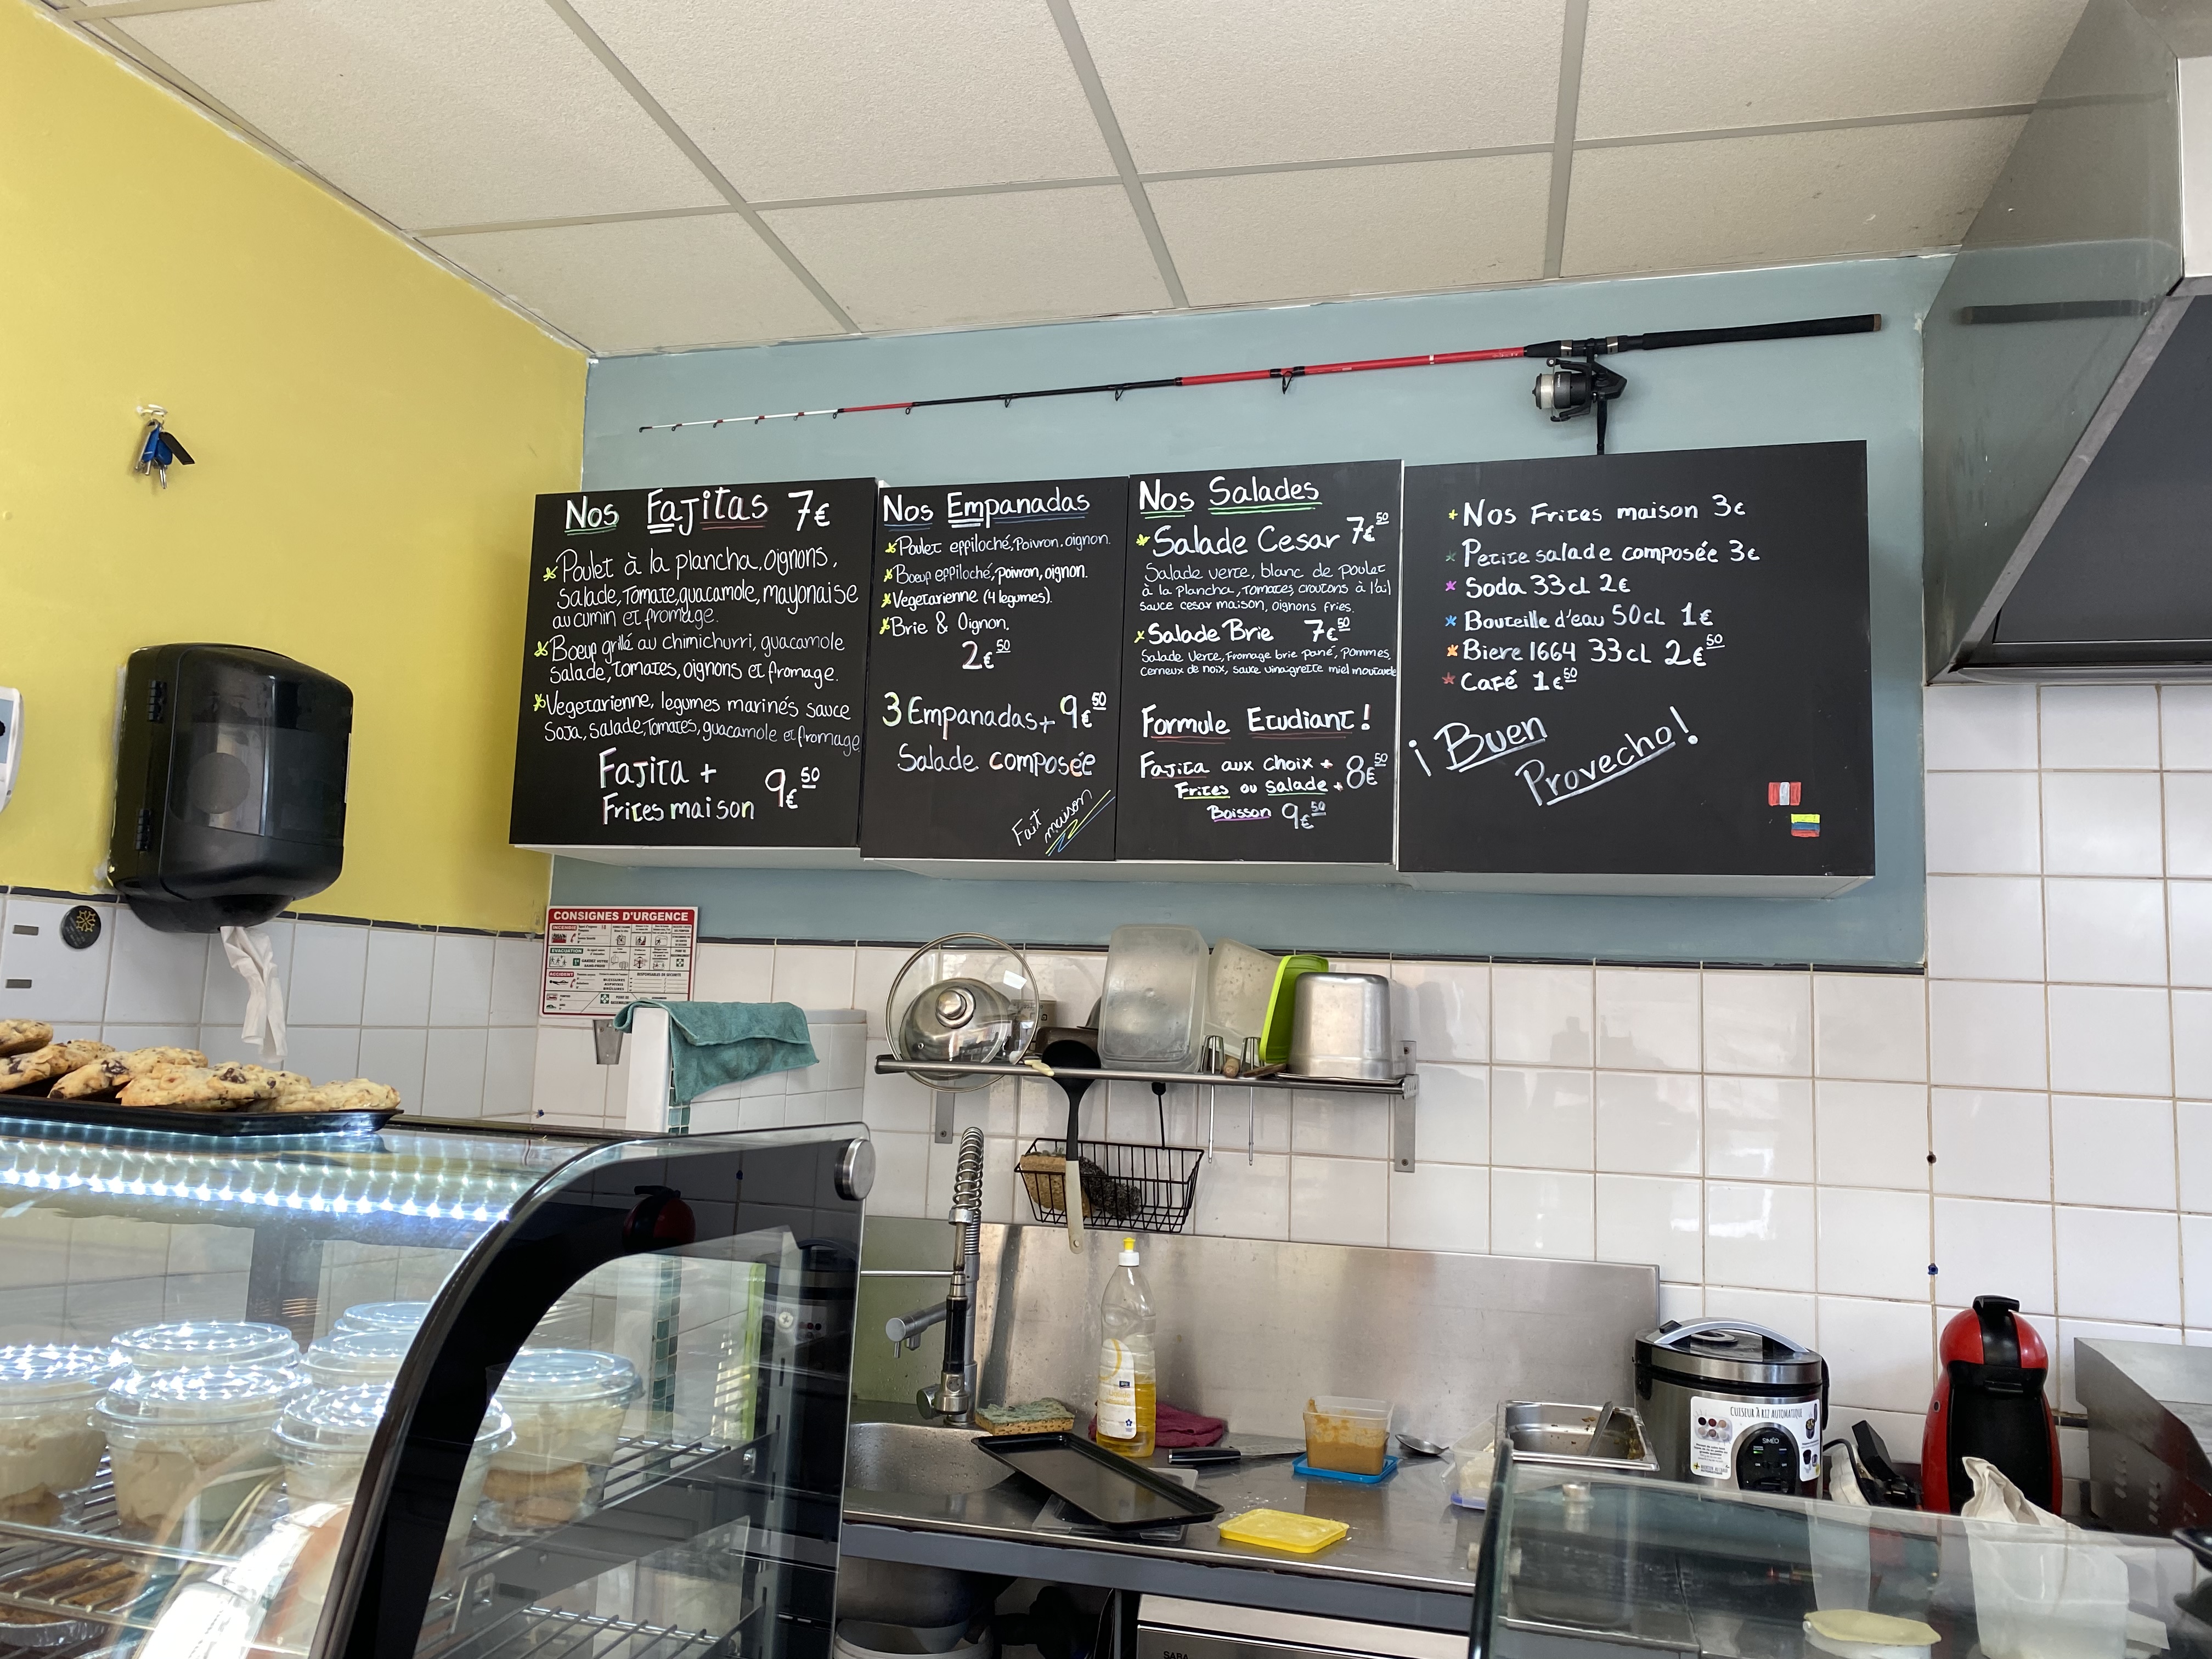 Nos Fajitas 7€
Poulet à la plancha, oignons,
salade, Tomate, guacamole, mayonaise
au cumin et fromage.
Boeuf grillé au chimichurri, guacamole
Salade, tomates, oignons et fromage.
Vegetarienne, legumes marinés sauce
Soja, salade, Tomates, guacamole et fromage
Fajita + 9€50
Frites maison
Nos Empanadas
Poulet effiloché, Poivron, oignon.
Boeuf effiloché, poivron, oignon.
Vegetarienne (4 legumes).
Brie & Oignon.
2€50
3 Empanadas + 9€50
Salade composée
Fait
maison
Nos Salades
Salade Cesar 7€50
Salade verte, blanc de poulet
à la plancha, Tomates, croutons à l'ail
sauce cesar maison, oignons fries.
Salade Brie 7€50
Salade Verte, Fromage brie pané, pommes,
cerneux de noix, sauce vinaigrette miel moutarde
Formule Etudiant!
Fajita aux choix + 8€50
Frites ou salade +
Boisson 9€50
Nos Frites maison 3€
Petite salade composée 3€
Soda 33cl 2€
Bouteille d'eau 50cl 1€
Biere 1664 33cl 2€50
Café 1€50
¡Buen
Provecho!
CONSIGNES D'URGENCE
INCENDIE
EVACUATION
ACCIDENT
CUISEUR À RIZ AUTOMATIQUE
SIMÉO
SABA